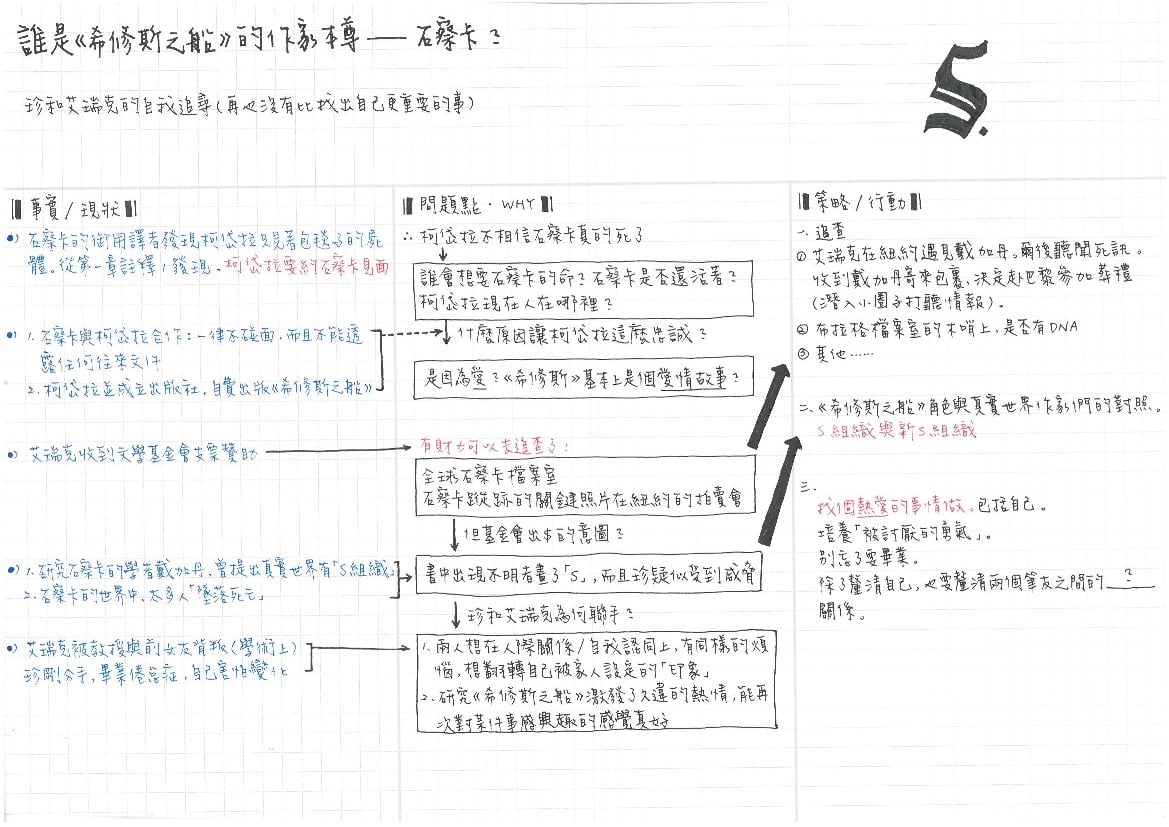 誰是《希修斯之船》的作家本尊——石察卡?
S.
珍和艾瑞克的自我追尋(再也沒有比找出自己更重要的事)
事實/現狀
石察卡的御用譯者發現柯岱拉只見著包毯子的屍
體。從第一章註釋,發現、柯岱拉要約石察卡見面
1.石察卡與柯岱拉合作:一律不碰面,而且不能透
露任何往來文件
2.柯岱拉並成立出版社,自費出版《希修斯之船》
艾瑞克收到文學基金會支票贊助
1.研究石察卡的學者戴加丹,曾提出真實世界有「S組織」
2.石察卡的世界中,太多人「墜落死亡」
艾瑞克被教授與前女友背叛(學術上)
珍剛分手,畢業倦怠症,自己害怕變化
問題點·WHY
∴柯岱拉不相信石察卡真的死了
誰會想要石察卡的命?石察卡是否還活著?
柯岱拉現在人在哪裡?
什麼原因讓柯岱拉這麼忠誠?
是因為愛?《希修斯》基本上是個愛情故事?
有財力可以去追查了!
全球石察卡檔案室
石察卡蹤跡的關鍵照片在紐約的拍賣會
但基金會出$的意圖?
書中出現不明者畫了「S」,而且珍疑似受到威脅
珍和艾瑞克為何聯手?
1.兩人想在人際關係/自我認同上,有同樣的煩
惱,想翻轉自己被家人設定的「印象」
2.研究《希修斯之船》激發了久違的熱情,能再
次對某件事感興趣的感覺真好
策略/行動
一.追查
①艾瑞克在紐約遇見戴加丹。爾後聽聞死訊。
收到戴加丹寄來包裹,決定赴巴黎參加葬禮
(潛入小圈子打聽情報)。
②布拉格檔案室的木哨上,是否有DNA
③其他……
二.《希修斯之船》角色與真實世界作家們的對照。
S組織與新S.組織
三.
找個熱愛的事情做。包括自己。
培養「被討厭的勇氣」。
別忘了要畢業。
除了釐清自己,也要釐清兩個筆友之間的__?__
關係。